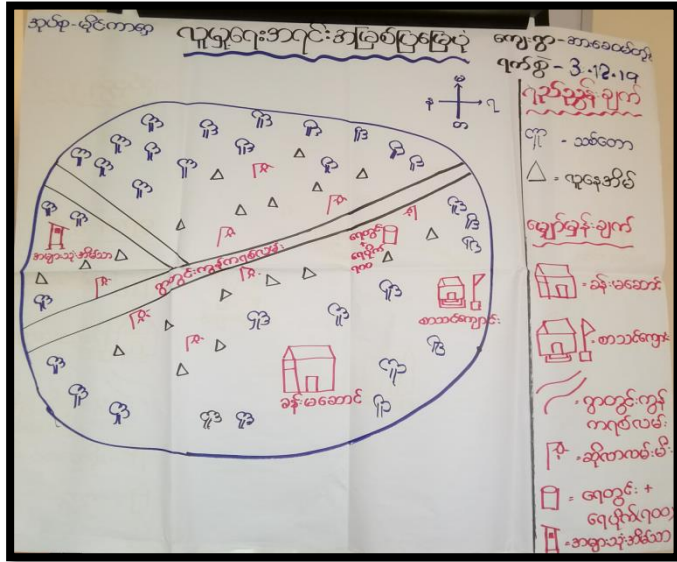 အုပ်စု-မိုင်ကာရှေ့
လူမှုရေးအရင်းအမြစ်ပြမြေပုံ
ကျေးရွာ-
ရက်စွဲ - 3.12.19
ရည်ညွှန်းချက်
မ
န
ရ
တ
- သစ်တော
- လူနေအိမ်
မျှော်မှန်းချက်
= ခန်းမဆောင်
= စာသင်ကျောင်း
= ရွာတွင်းကွန်
ကရစ်လမ်း
= ဆိုလာလမ်းမီး
= ရေတွင်း +
ရေပိုက်(၅၀၀)
= အများသုံးအိမ်သာ
အများသုံးအိမ်သာ
ရွာတွင်းကွန်ကရစ်လမ်း
ရေတွင်း
+
ရေပိုက်
၅၀၀
စာသင်ကျောင်း
ခန်းမဆောင်